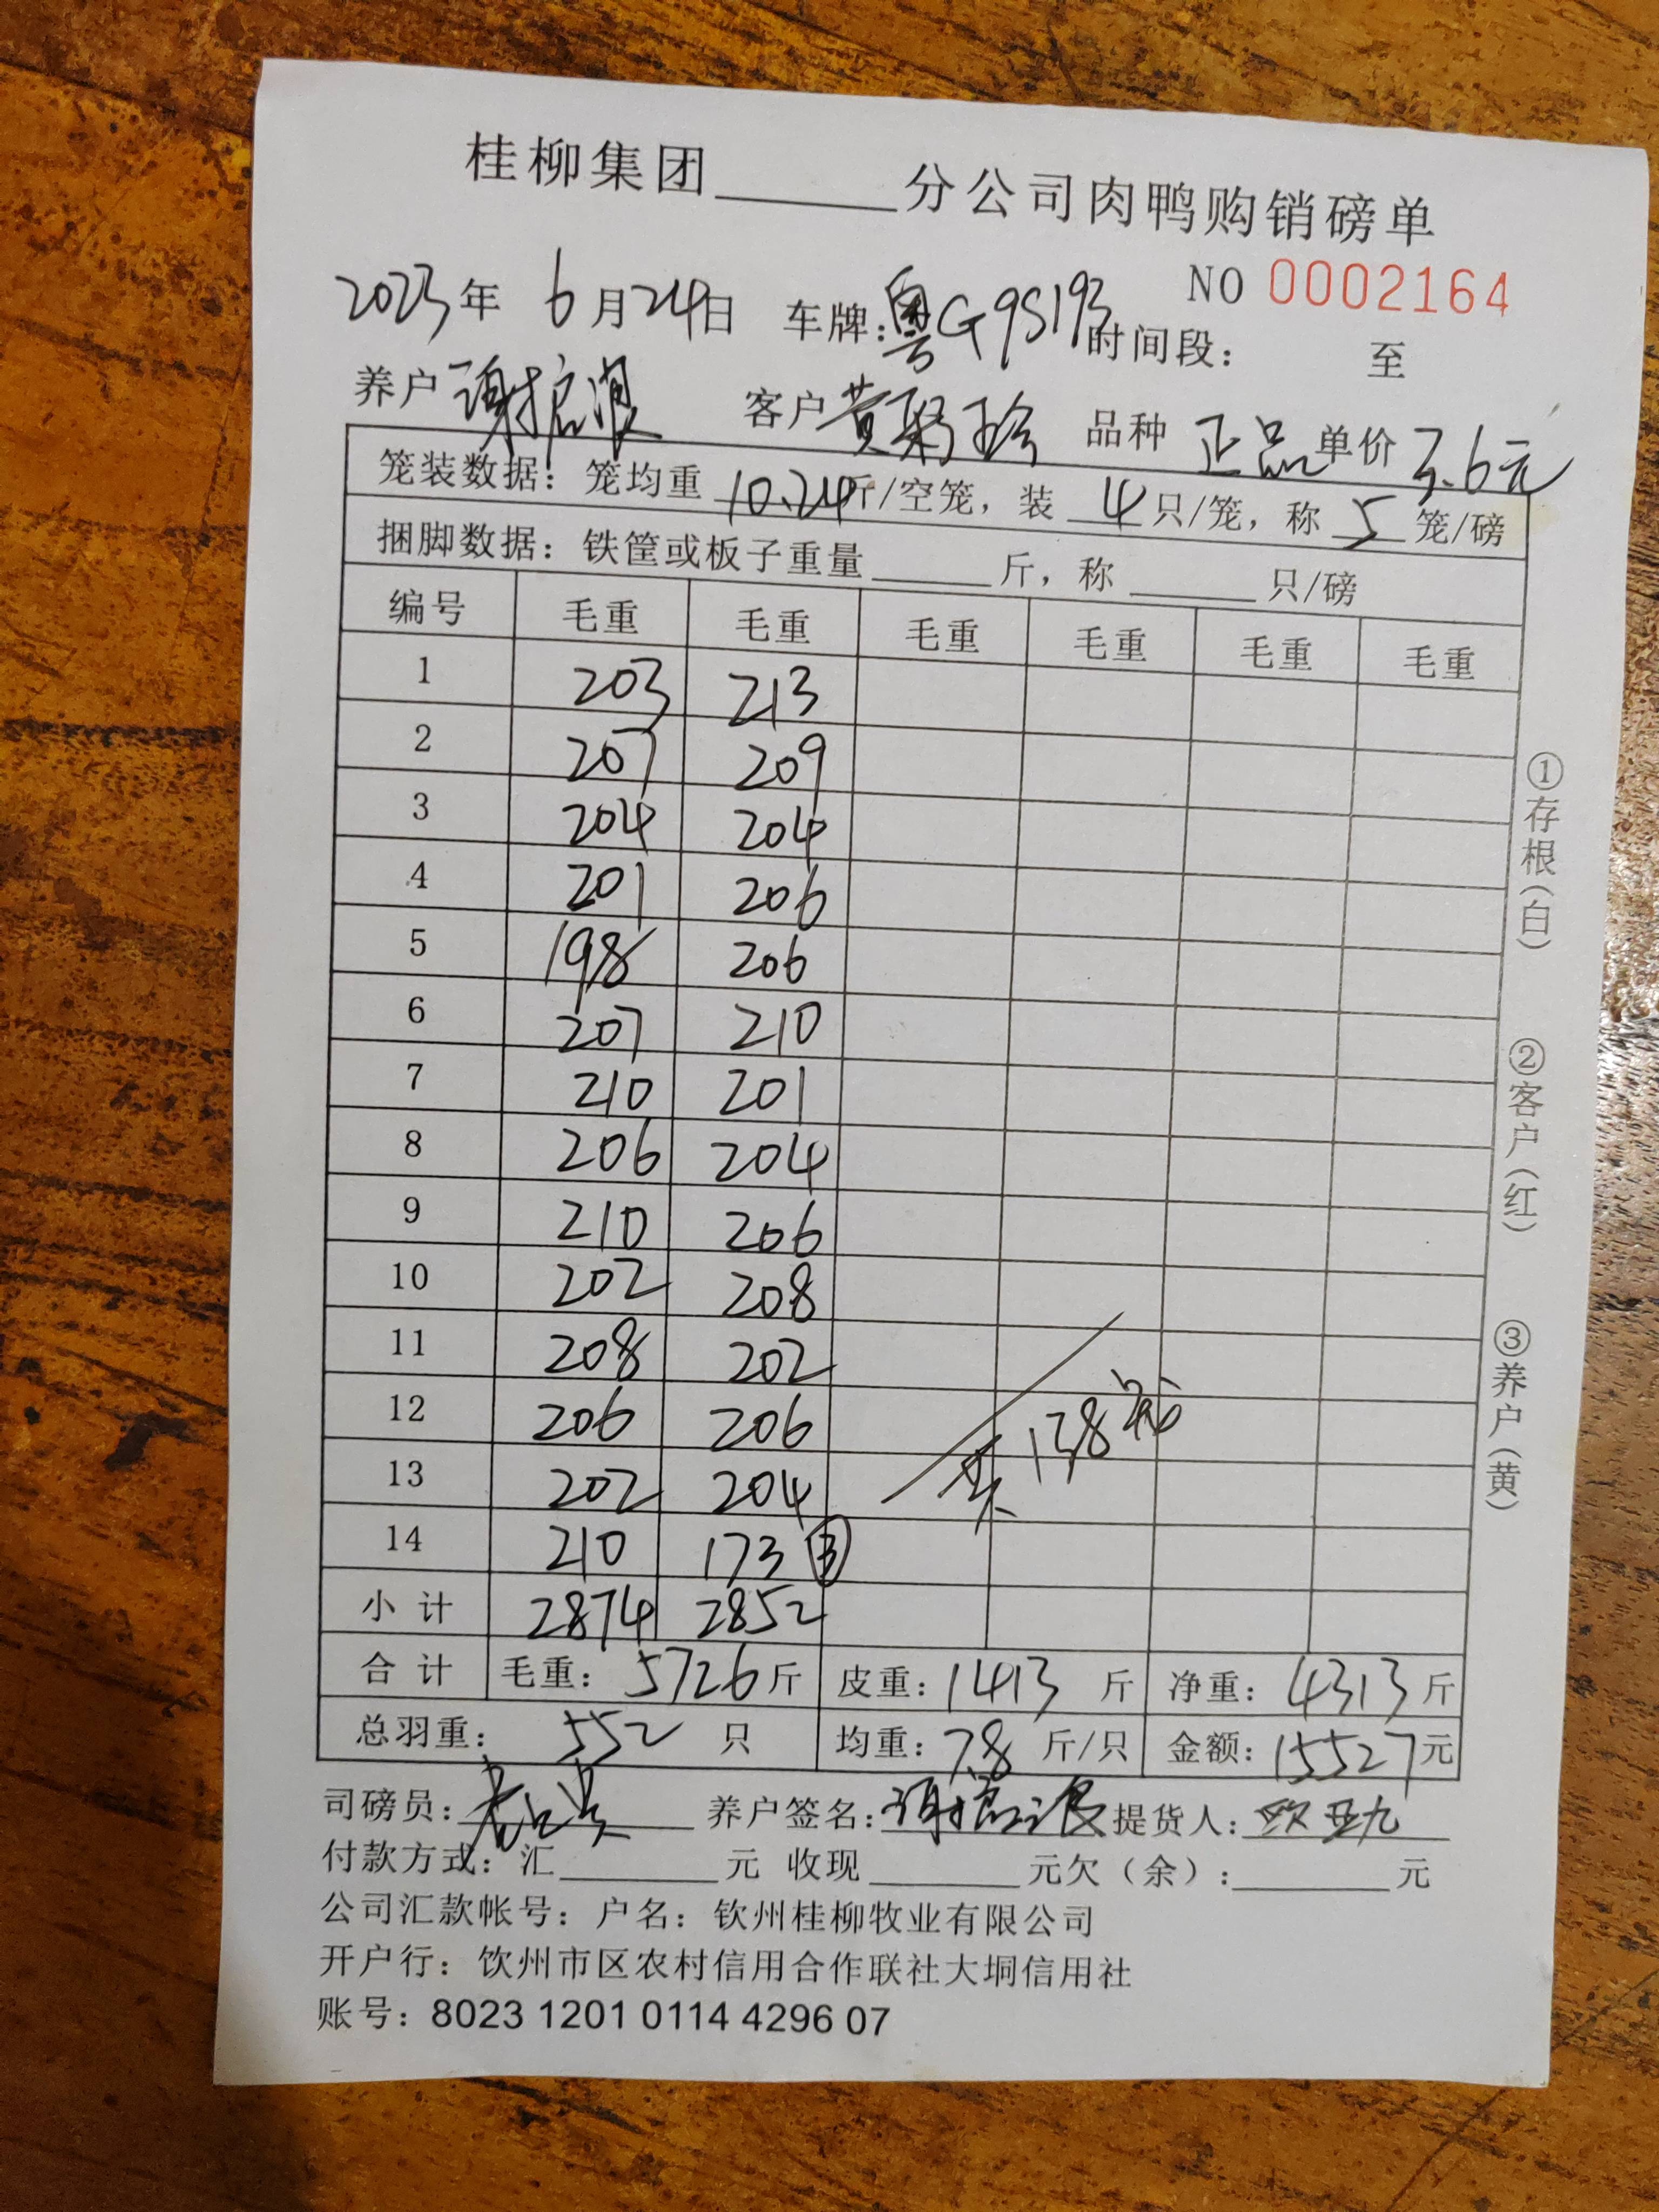 桂柳集团______分公司肉鸭购销磅单
NO 0002164
2023年 6月24日 车牌:粤G9S193 时间段: 至
养户 谢 客户 黄 品种 正品 单价 3.6元
笼装数据: 笼均重 10.24斤/空笼, 装 4 只/笼, 称 5 笼/磅
捆脚数据: 铁筐或板子重量______斤, 称______只/磅
编号 毛重 毛重 毛重 毛重 毛重 毛重
1 203 213
2 207 209
3 204 204
4 201 206
5 198 206
6 207 210
7 210 201
8 206 204
9 210 206
10 202 208
11 208 202
12 206 206
13 202 204
14 210 173 ③
138
小计 2874 2852
合计 毛重: 5726斤 皮重: 1413 斤 净重: 4313斤
总羽重: 552 只 均重: 7.8 斤/只 金额: 15527元
司磅员: 养户签名: 谢 提货人: 欧亚九
付款方式: 汇______元 收现______元欠(余):______元
公司汇款帐号: 户名: 钦州桂柳牧业有限公司
开户行: 饮州市区农村信用合作联社大垌信用社
账号: 8023 1201 0114 4296 07
①存根(白)
②客户(红)
③养户(黄)